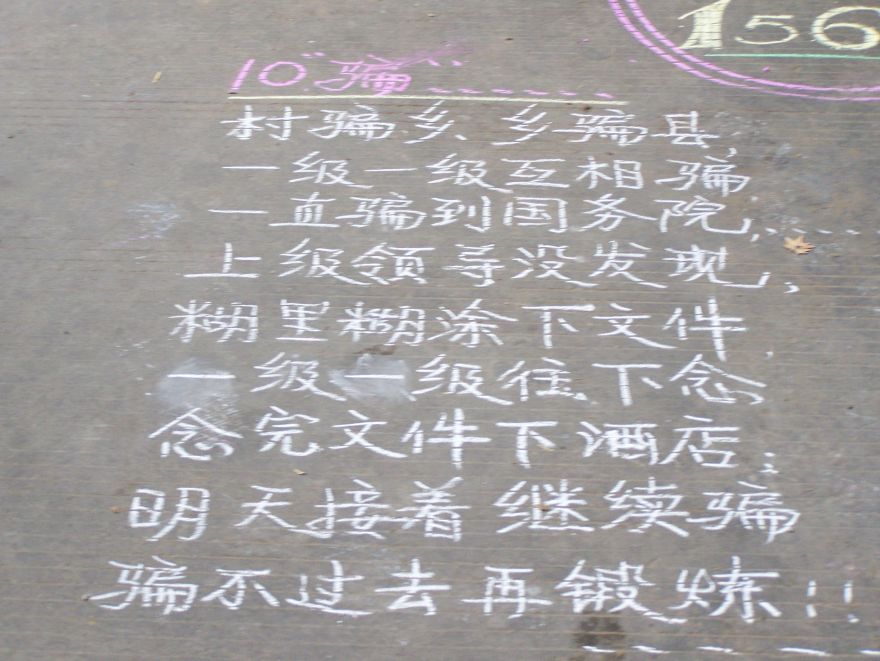 156
10 "骗"
村骗乡、乡骗县,
一级一级互相骗
一直骗到国务院,
上级领导没发现,
糊里糊涂下文件
一级一级往下念
念完文件下酒店;
明天接着继续骗
骗不过去再锻炼!!